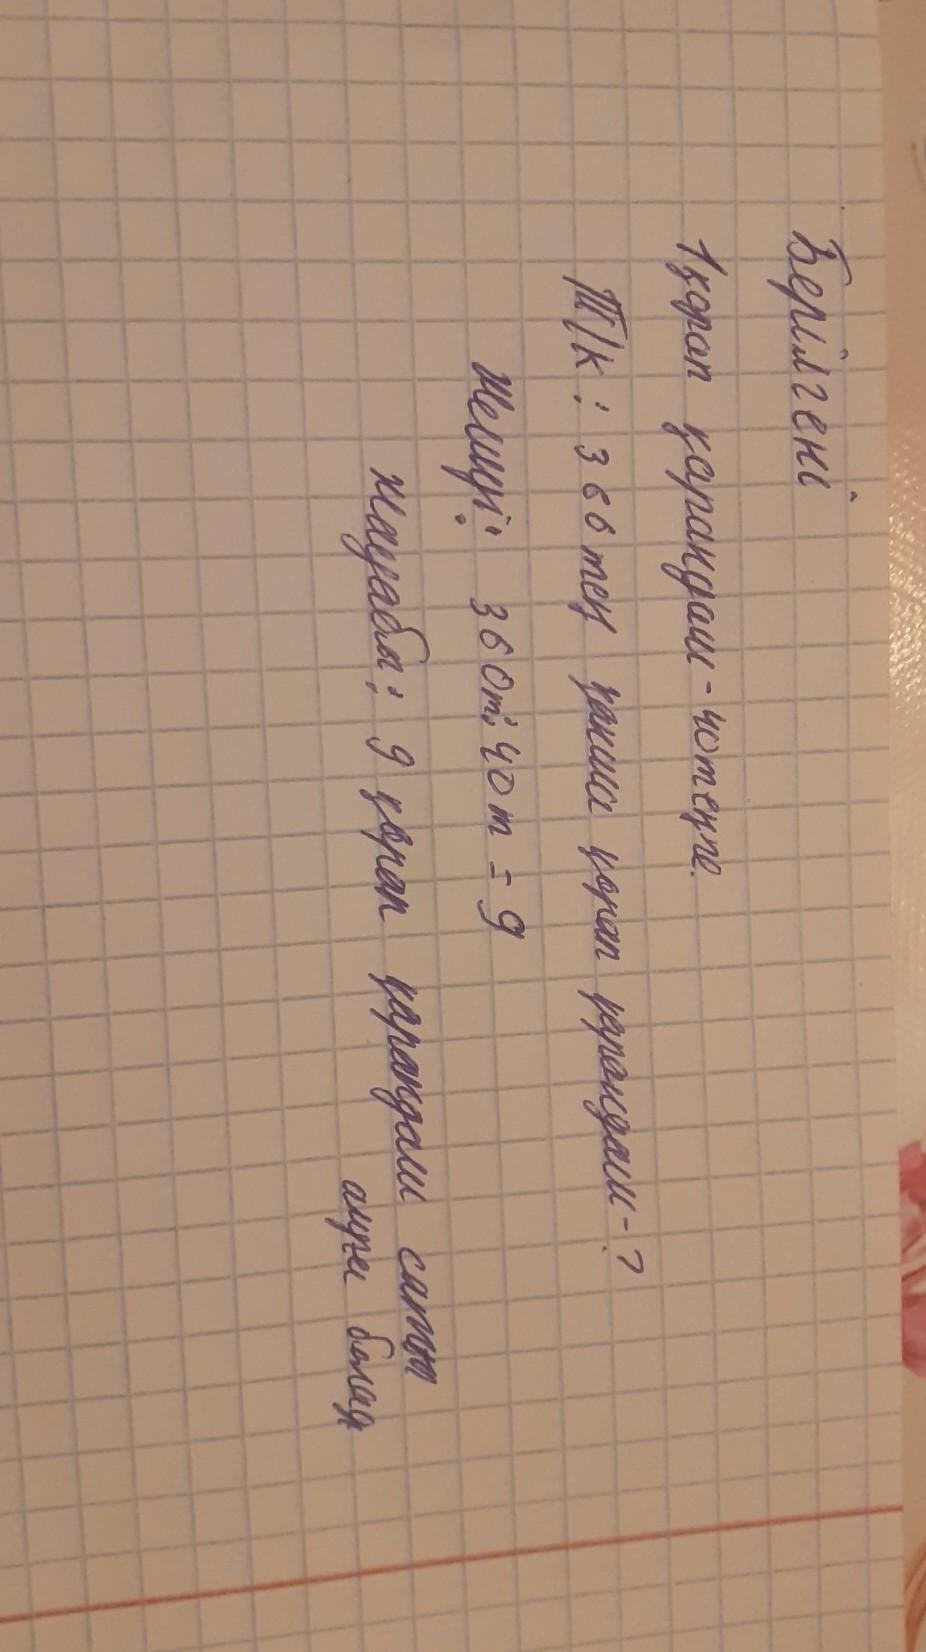 Берілгені
1қорап қарандаш - 40теңге.
Т/к: 360 тең қанша қорап қарандаш - ?
Шешуі: 360т:40т = 9
Жауабы: 9 қорап қарандаш сатып
алуға болад